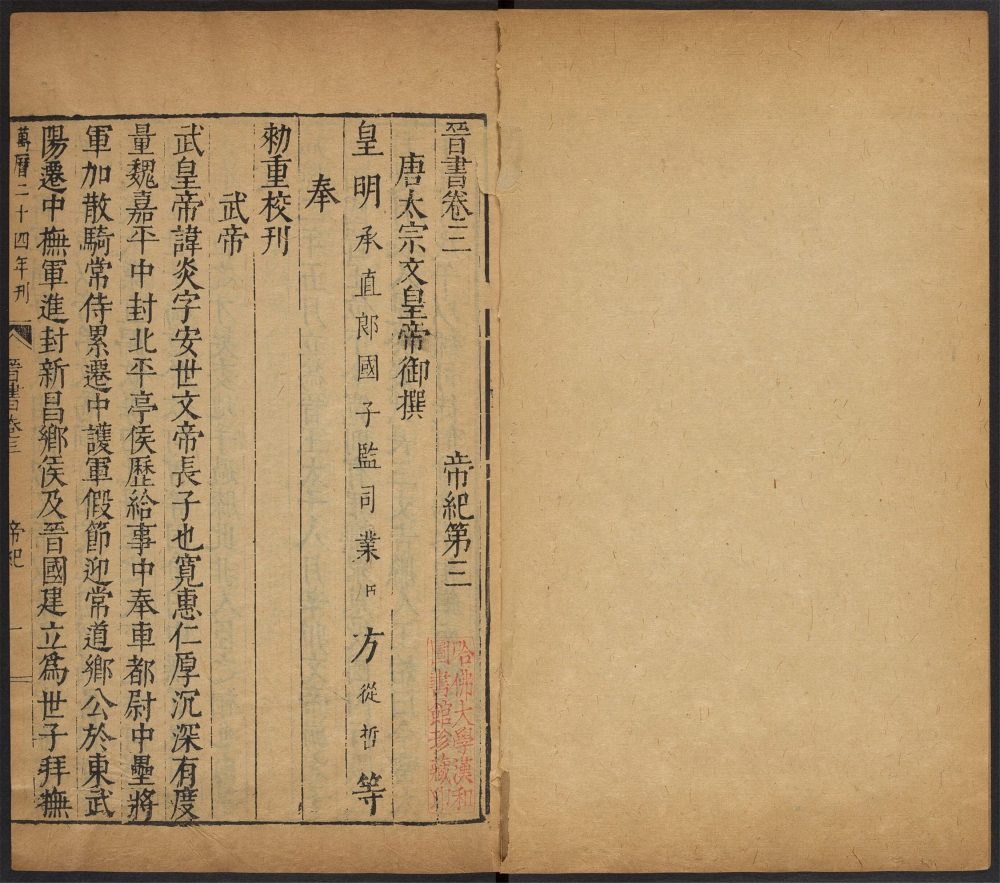 晉書卷三 帝紀第三
唐太宗文皇帝御撰
皇明承直郎國子監司業臣方從哲等
奉
勑重校刊
武帝
武皇帝諱炎字安世文帝長子也寬惠仁厚沉深有度
量魏嘉平中封北平亭侯歷給事中奉車都尉中壘將
軍加散騎常侍累遷中護軍假節迎常道鄉公於東武
陽遷中撫軍進封新昌鄉侯及晉國建立爲世子拜撫
萬曆二十四年刊 晉書卷三 帝紀 一
哈佛大學漢和
圖書館珍藏印